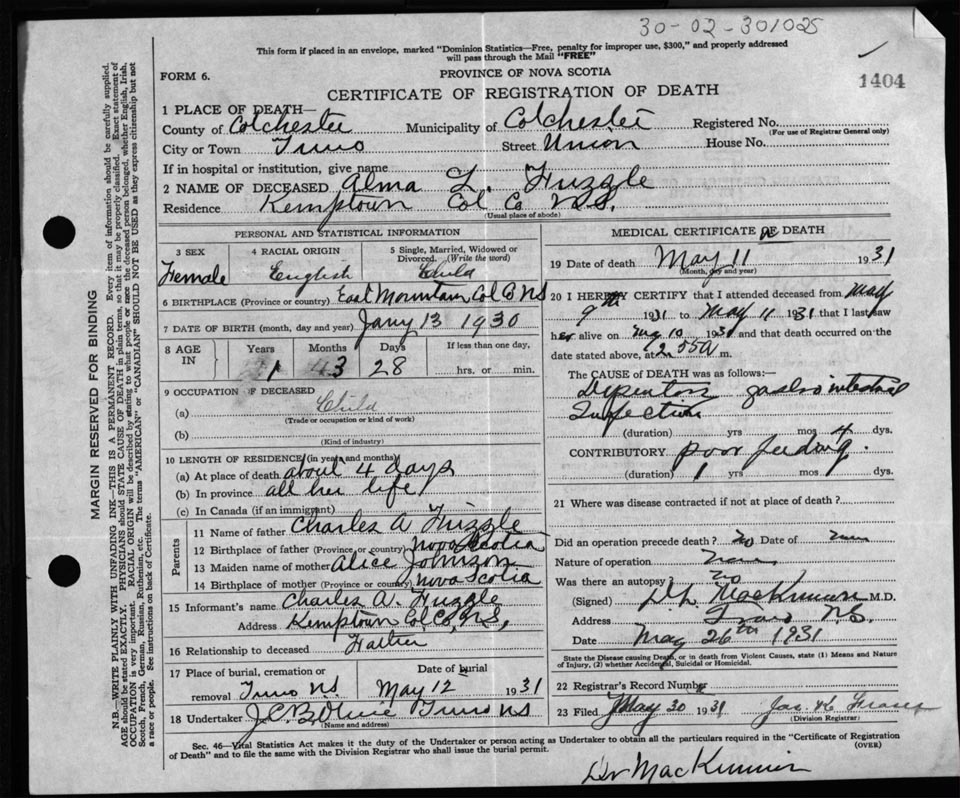 30-02-301025
This form if placed in an envelope, marked "Dominion Statistics—Free, penalty for improper use, $300," and properly addressed
will pass through the Mail "FREE"
FORM 6.
PROVINCE OF NOVA SCOTIA
1404
CERTIFICATE OF REGISTRATION OF DEATH
1 PLACE OF DEATH—
County of Colchester Municipality of Colchester Registered No.
(For use of Registrar General only)
City or Town Truro Street Union House No.
If in hospital or institution, give name
2 NAME OF DECEASED Alma L. Frizzle
Residence Kemptown Col Co N.S.
(Usual place of abode)
PERSONAL AND STATISTICAL INFORMATION
3 SEX 4 RACIAL ORIGIN 5 Single, Married, Widowed or
Divorced. (Write the word)
Female English Child
6 BIRTHPLACE (Province or country) East Mountain Col Co NS
7 DATE OF BIRTH (month, day and year) Jany 13 1930
8 AGE IN Years Months Days If less than one day,
1 3 28 hrs. or min.
9 OCCUPATION OF DECEASED
(a) Child
(Trade or occupation or kind of work)
(b)
(Kind of industry)
10 LENGTH OF RESIDENCE (in years and months)
(a) At place of death about 4 days
(b) In province all her life
(c) In Canada (if an immigrant)
Parents
11 Name of father Charles A Frizzle
12 Birthplace of father (Province or country) Nova Scotia
13 Maiden name of mother Alice Johnson
14 Birthplace of mother (Province or country) Nova Scotia
15 Informant's name Charles A. Frizzle
Address Kemptown Col. Co. N.S.
16 Relationship to deceased Father
17 Place of burial, cremation or Date of burial
removal Truro NS. May 12 1931
18 Undertaker Truro NS
(Name and address)
MEDICAL CERTIFICATE OF DEATH
19 Date of death May 11 1931
(Month, day and year)
20 I HEREBY CERTIFY that I attended deceased from May
9th 1931 to May 11 1931 that I last saw
her alive on May 10 1931 and that death occurred on the
date stated above, at 2.55A m.
The CAUSE OF DEATH was as follows:—
gastro intestinal
Infection
(duration) yrs mos 4 dys.
CONTRIBUTORY poor feeding.
(duration) 1 yrs mos dys.
21 Where was disease contracted if not at place of death?
Did an operation precede death? no Date of
Nature of operation
Was there an autopsy no
(Signed) MacKinnon M.D.
Address Truro N.S.
Date May 26th 1931
State the Disease causing Death, or in death from Violent Causes, state (1) Means and Nature
of Injury, (2) whether Accidental, Suicidal or Homicidal.
22 Registrar's Record Number
23 Filed May 30 1931
(Division Registrar)
Sec. 46—Vital Statistics Act makes it the duty of the Undertaker or person acting as Undertaker to obtain all the particulars required in the "Certificate of Registration
of Death" and to file the same with the Division Registrar who shall issue the burial permit.
(OVER)
Dr MacKinnon
MARGIN RESERVED FOR BINDING
N.B.—WRITE PLAINLY WITH UNFADING INK—THIS IS A PERMANENT RECORD. Every item of information should be carefully supplied.
AGE should be stated EXACTLY. PHYSICIANS should state CAUSE OF DEATH in plain terms, so that it may be properly classified. Exact statement of
OCCUPATION is very important. RACIAL ORIGIN will be described by stating to what people or race the deceased person belonged, whether English, Irish,
Scotch, French, German, Russian, Ruthenian, etc. The terms "AMERICAN" or "CANADIAN" SHOULD NOT BE USED as they express citizenship but not
a race or people. See instructions on back of Certificate.